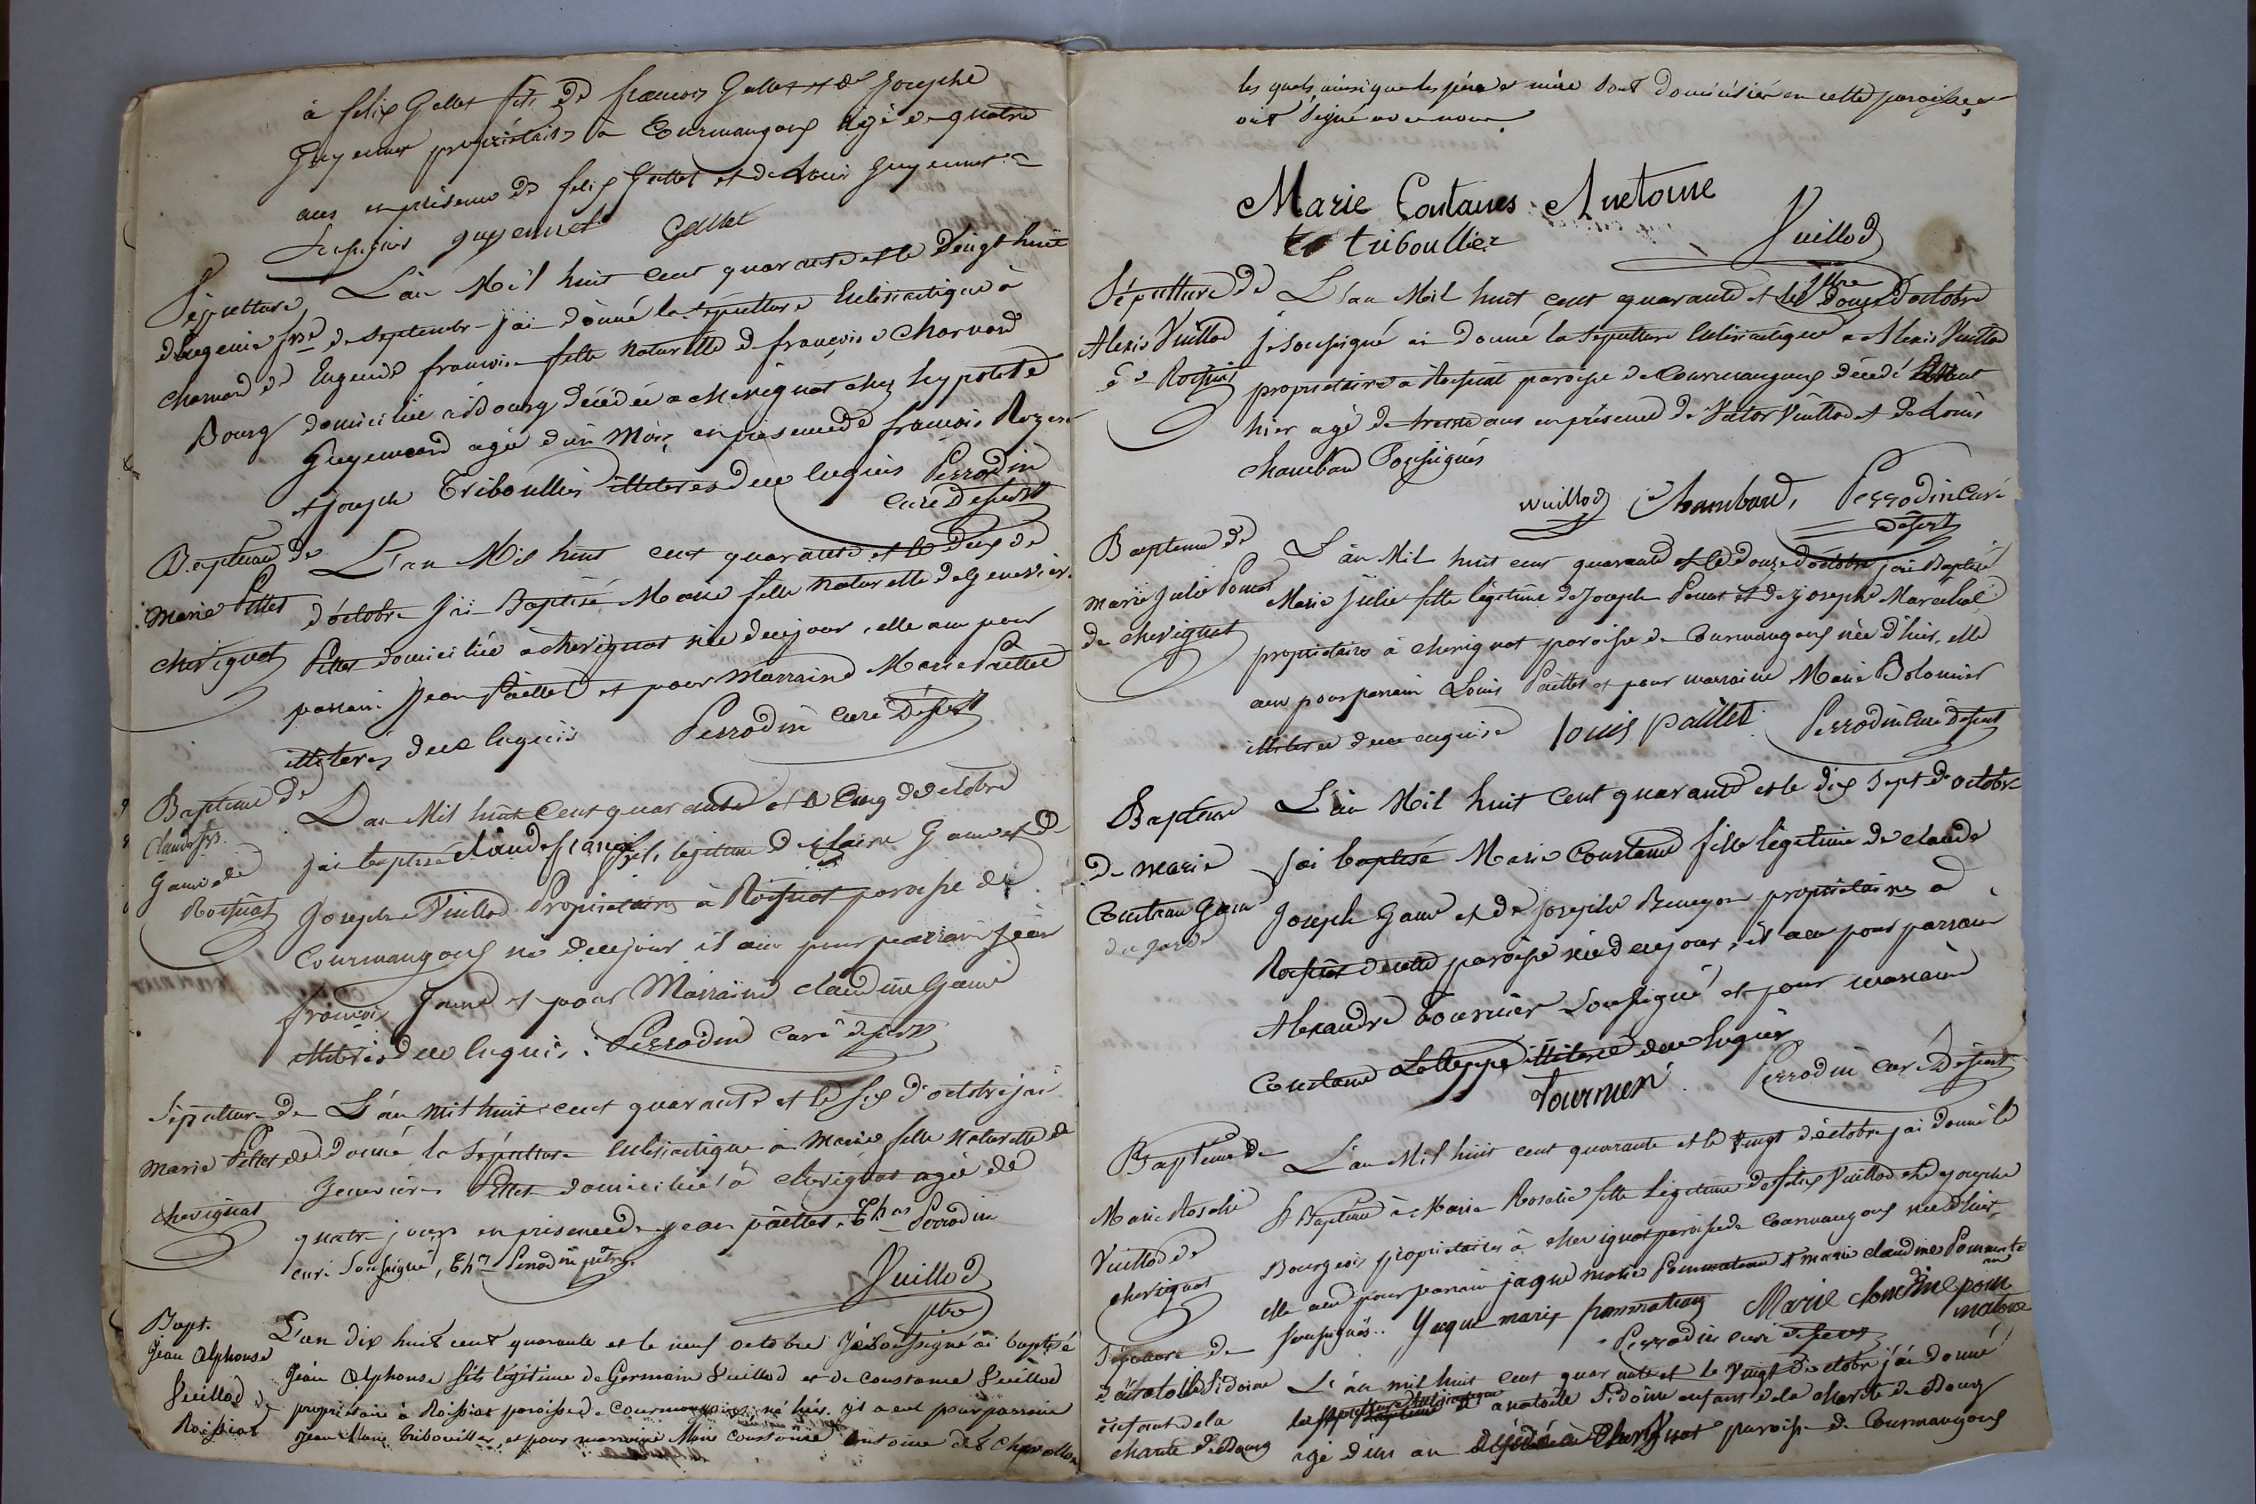 à felix Gallet fils de francois Gallet et de Josephe
Guyennet propriétaires à Courmangoux agé de quatre
ans en présence de felix Gallet et de Louis Guyennet
soussignés guyennet Gallet
Sépulture d'Eugenie frse Charnard de Bourg
L'an Mil huit cent quarante et le vingt huit
de septembre j'ai donné la sépulture Eclésiastique à
Eugenie francoise fille naturelle de françoise Charnard
domiciliée à Bourg décédée a chevignat chez hypolite
Guyennard agée d'un Mois en présence de francois Rozier
et Joseph Triboullier illiterés deux enquis Perrodin
curé Desservt
Baptême de Marie Pillet chevignat
L'an Mil huit cent quarante et le deux de
d'octobre j'ai Baptisé Marie fille naturelle de Genevieve
Pillet domiciliée à chevignat née de ce jour, elle a eu pour
parrain Jean Paillet et pour Marraine Marie Paillet
illiterés deux enquis Perrodin curé Desservt
Baptême de Claude frs. Game de Roissiat
L'an Mil huit Cent quarante et le Cinq de octobre
j'ai baptisé claude françois fils légitime de claire Game et de
Josephe Vuillod Propriétaires à Roissiat paroisse de
Courmangoux né de ce jour il a eu pour parrain Jean
francois Jame et pour Marraine claudine Game
illiterés deux enquis. Perrodin Curé desservt
Sépulture de Marie Pillet de chevignat
L'an mil huit cent quarante et le six d'octobre j'ai
donné la sépulture eclésiastique à marie fille naturelle de
Genevieve Pillet domiciliée à chevignat agée de
quatre jours en présence de jean paillet. Thas Perrodin
curé soussigné, Thas Perrodin ptre.
Vuillod
ptre
Bapt. Jean Alphonse Vuillod de Roissiat
L'an dix huit cent quarante et le neuf octobre Je soussigné ai baptisé
Jean Alphonse fils légitime de Germain Vuillod et de constance Vuillod
propriétaire à Roissiat paroisse de courmangoux né hier. il a eu pour parrain
Jean Marie Triboullier, et pour marraine Marie Constance Antoine de
les quels ainsi que les père et mère sont domiciliés en cette paroisse et
ont signé avec nous.
Marie Contanes Anetoine
triboullier
Vuillod
ptre
Sépulture de Alexis Vuillod de Roissiat
L'an Mil huit cent quarante et le douze d'octobre
je soussigné ai donné la sépulture Eclésiastique a Alexis Vuillod
propriétaire à Roissiat paroisse de Courmangoux décédé
hier agé de trente ans en présence de Victor Vuillod et de Louis
Chambard soussignés
wuillod Chambard, Perrodin Curé
Desservt
Baptême de Marie Julie Ponas de chevignat
L'an Mil huit cent quarante et le Douze d'octobre j'ai Baptisé
Marie Julie fille légitime de Joseph Ponas et de Josephe Marechal
propriétaires à chevignat paroisse de Courmangoux née d'hier, elle
a eu pour parrain Louis Paillet et pour marraine Marie Bolomier
illiterée de ce enquise louis paillet. Perrodin Curé Desservt
Baptême de marie Constance Game
L'an Mil huit Cent quarante et le dix sept d'octobre
j'ai baptisé Marie Constance fille légitime de claude
Joseph Game et de Josephe propriétaires a
Roissiat de cette paroisse née de ce jour, il a eu pour parrain
Alexandre Tournier soussigné et pour marraine
Constance illiterée de ce enquis
Tournier Perrodin Curé Desservt
Baptême de Marie Rosalie Vuillod de chevignat
L'an Mil huit cent quarante et le vingt d'octobre j'ai donné le
St Baptême à Marie Rosalie fille légitime de felix Vuillod et de Josephe
Bourgeois propriétaires à chevignat paroisse de Courmangoux née d'hier
elle a eu pour parrain jaque marie Pommateau et marie claudine Pommate
soussignés.. Jaque marie pommateau Marie Claudine pom
matau
Perrodin curé desservt
Sépulture de anatoille Sidoine enfant de la charité de Bourg
L'an mil huit cent quarante et le Vingt d'octobre j'ai donné
la sépulture Eclésiastique a anatoille Sidoine enfant de la charité de Bourg
agé d'un an décédé à chevignat paroisse de Courmangoux